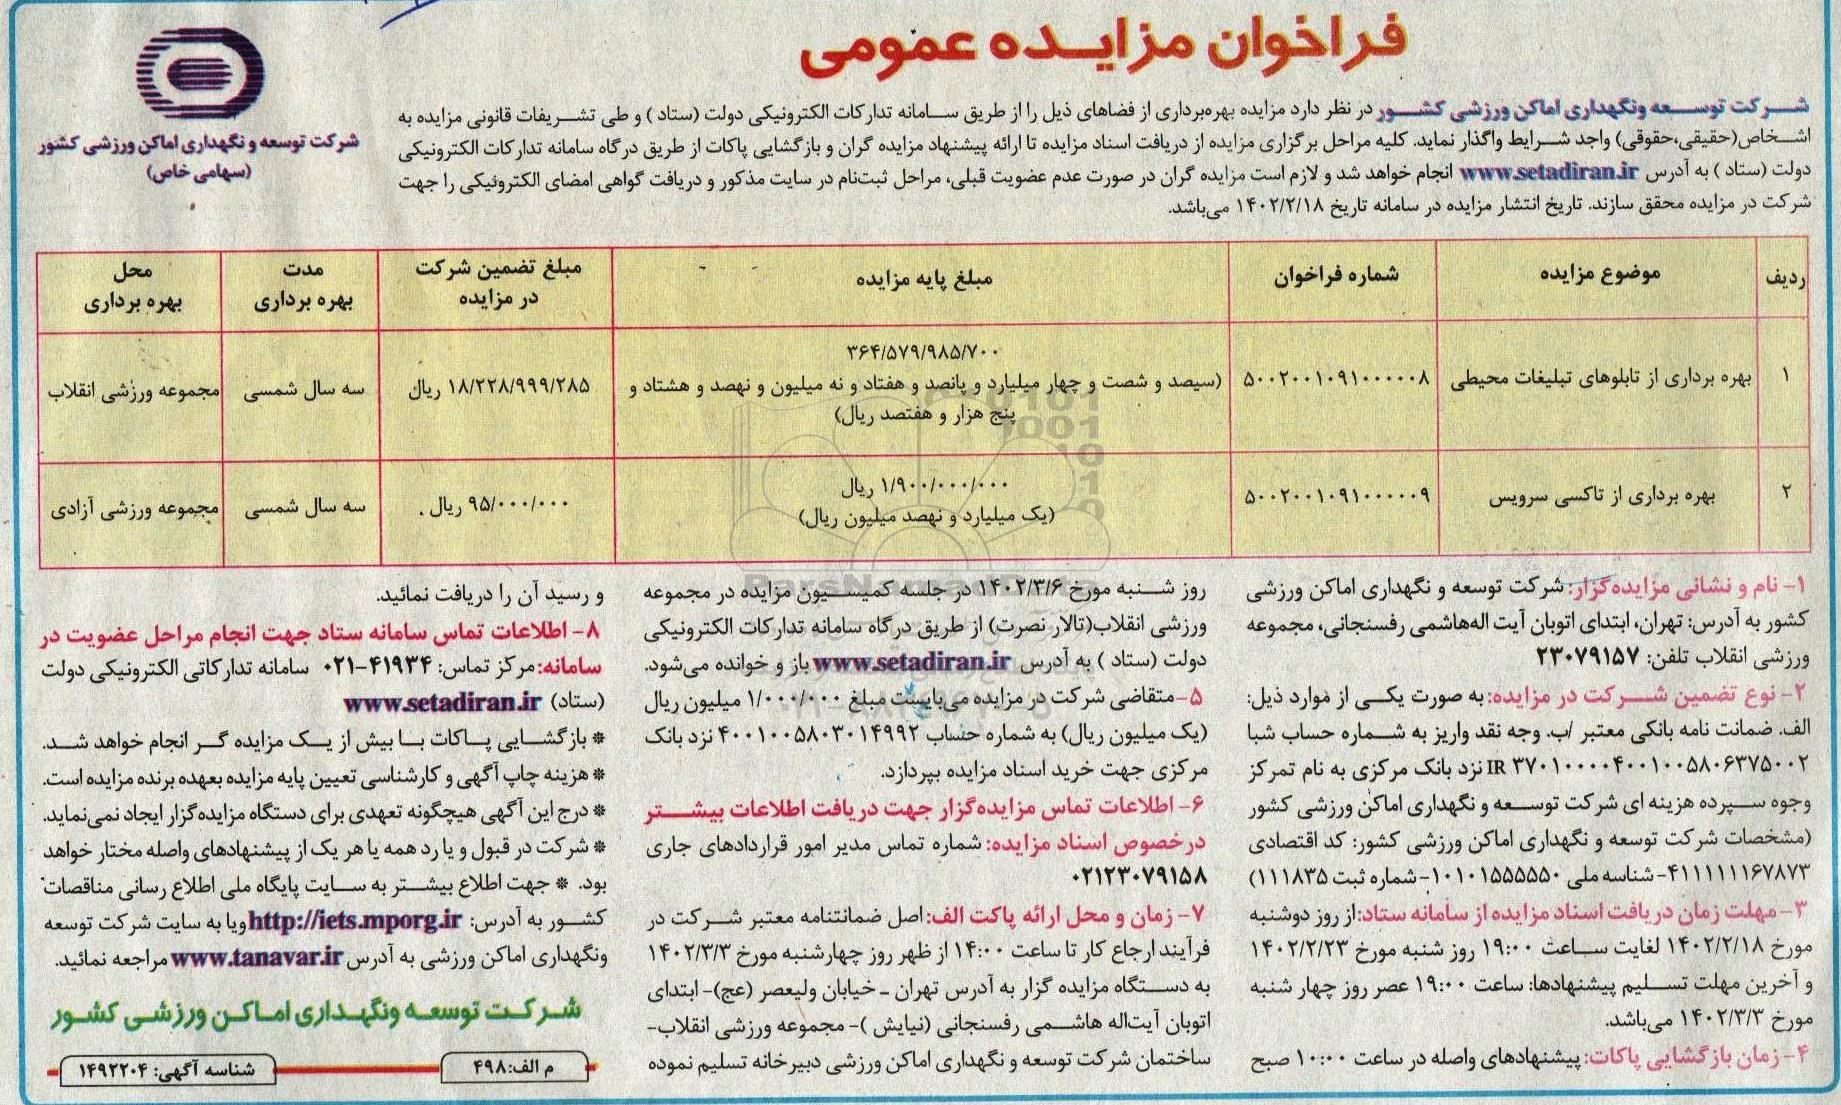 فراخوان مزایـده عمومی
شرکت توسعه و نگهداری اماکن ورزشی کشور
(سهامی خاص)
شرکت توسعه ونگهداری اماکن ورزشی کشور در نظر دارد مزایده بهره‌برداری از فضاهای ذیل را از طریق سامانه تدارکات الکترونیکی دولت (ستاد ) و طی تشریفات قانونی مزایده به
اشخاص(حقیقی،حقوقی) واجد شرایط واگذار نماید. کلیه مراحل برگزاری مزایده از دریافت اسناد مزایده تا ارائه پیشنهاد مزایده گران و بازگشایی پاکات از طریق درگاه سامانه تدارکات الکترونیکی
دولت (ستاد ) به آدرس www.setadiran.ir انجام خواهد شد و لازم است مزایده گران در صورت عدم عضویت قبلی، مراحل ثبت‌نام در سایت مذکور و دریافت گواهی امضای الکترونیکی را جهت
شرکت در مزایده محقق سازند. تاریخ انتشار مزایده در سامانه تاریخ ۱۴۰۲/۲/۱۸ می‌باشد.
ردیف | موضوع مزایده | شماره فراخوان | مبلغ پایه مزایده | مبلغ تضمین شرکت در مزایده | مدت بهره برداری | محل بهره برداری
۱ | بهره برداری از تابلوهای تبلیغات محیطی | ۵۰۰۲۰۰۱۰۹۱۰۰۰۰۰۸ | ۳۶۴/۵۷۹/۹۸۵/۷۰۰ (سیصد و شصت و چهار میلیارد و پانصد و هفتاد و نه میلیون و نهصد و هشتاد و پنج هزار و هفتصد ریال) | ۱۸/۲۲۸/۹۹۹/۲۸۵ ریال | سه سال شمسی | مجموعه ورزشی انقلاب
۲ | بهره برداری از تاکسی سرویس | ۵۰۰۲۰۰۱۰۹۱۰۰۰۰۰۹ | ۱/۹۰۰/۰۰۰/۰۰۰ ریال (یک میلیارد و نهصد میلیون ریال) | ۹۵/۰۰۰/۰۰۰ ریال . | سه سال شمسی | مجموعه ورزشی آزادی
۱- نام و نشانی مزایده‌گزار: شرکت توسعه و نگهداری اماکن ورزشی
کشور به آدرس: تهران، ابتدای اتوبان آیت اله‌هاشمی رفسنجانی، مجموعه
ورزشی انقلاب تلفن: ۲۳۰۷۹۱۵۷
۲- نوع تضمین شرکت در مزایده: به صورت یکی از موارد ذیل:
الف. ضمانت نامه بانکی معتبر /ب. وجه نقد واریز به شماره حساب شبا
IR ۳۷۰۱۰۰۰۰۴۰۰۱۰۰۵۸۰۶۳۷۵۰۰۲ نزد بانک مرکزی به نام تمرکز
وجوه سپرده هزینه ای شرکت توسعه و نگهداری اماکن ورزشی کشور
(مشخصات شرکت توسعه و نگهداری اماکن ورزشی کشور: کد اقتصادی
۴۱۱۱۱۱۱۶۷۸۷۳- شناسه ملی ۱۰۱۰۱۵۵۵۵۵۰- شماره ثبت ۱۱۱۸۳۵)
۳- مهلت زمان دریافت اسناد مزایده از سامانه ستاد: از روز دوشنبه
مورخ ۱۴۰۲/۲/۱۸ لغایت ساعت ۱۹:۰۰ روز شنبه مورخ ۱۴۰۲/۲/۲۳
و آخرین مهلت تسلیم پیشنهادها: ساعت ۱۹:۰۰ عصر روز چهار شنبه
مورخ ۱۴۰۲/۳/۳ می‌باشد.
۴- زمان بازگشایی پاکات: پیشنهادهای واصله در ساعت ۱۰:۰۰ صبح
روز شنبه مورخ ۱۴۰۲/۳/۶ در جلسه کمیسیون مزایده در مجموعه
ورزشی انقلاب(تالار نصرت) از طریق درگاه سامانه تدارکات الکترونیکی
دولت (ستاد ) به آدرس www.setadiran.ir باز و خوانده می‌شود.
۵- متقاضی شرکت در مزایده می‌بایست مبلغ ۱/۰۰۰/۰۰۰ میلیون ریال
(یک میلیون ریال) به شماره حساب ۴۰۰۱۰۰۵۸۰۳۰۱۴۹۹۲ نزد بانک
مرکزی جهت خرید اسناد مزایده بپردازد.
۶- اطلاعات تماس مزایده‌گزار جهت دریافت اطلاعات بیشتر
درخصوص اسناد مزایده: شماره تماس مدیر امور قراردادهای جاری
۰۲۱۲۳۰۷۹۱۵۸
۷- زمان و محل ارائه پاکت الف: اصل ضمانتنامه معتبر شرکت در
فرآیند ارجاع کار تا ساعت ۱۴:۰۰ از ظهر روز چهارشنبه مورخ ۱۴۰۲/۳/۳
به دستگاه مزایده گزار به آدرس تهران ـ خیابان ولیعصر (عج)- ابتدای
اتوبان آیت‌اله هاشمی رفسنجانی (نیایش )- مجموعه ورزشی انقلاب-
ساختمان شرکت توسعه و نگهداری اماکن ورزشی دبیرخانه تسلیم نموده
و رسید آن را دریافت نمائید.
۸- اطلاعات تماس سامانه ستاد جهت انجام مراحل عضویت در
سامانه: مرکز تماس: ۴۱۹۳۴-۰۲۱ سامانه تدارکاتی الکترونیکی دولت
(ستاد) www.setadiran.ir
* بازگشایی پاکات با بیش از یک مزایده گر انجام خواهد شد.
* هزینه چاپ آگهی و کارشناسی تعیین پایه مزایده بعهده برنده مزایده است.
* درج این آگهی هیچگونه تعهدی برای دستگاه مزایده‌گزار ایجاد نمی‌نماید.
* شرکت در قبول و یا رد همه یا هر یک از پیشنهادهای واصله مختار خواهد
بود. * جهت اطلاع بیشتر به سایت پایگاه ملی اطلاع رسانی مناقصات
کشور به آدرس: http://iets.mporg.ir ویا به سایت شرکت توسعه
ونگهداری اماکن ورزشی به آدرس www.tanavar.ir مراجعه نمائید.
شرکت توسعه ونگهداری اماکن ورزشی کشور
م الف:۴۹۸
شناسه آگهی: ۱۴۹۲۲۰۴